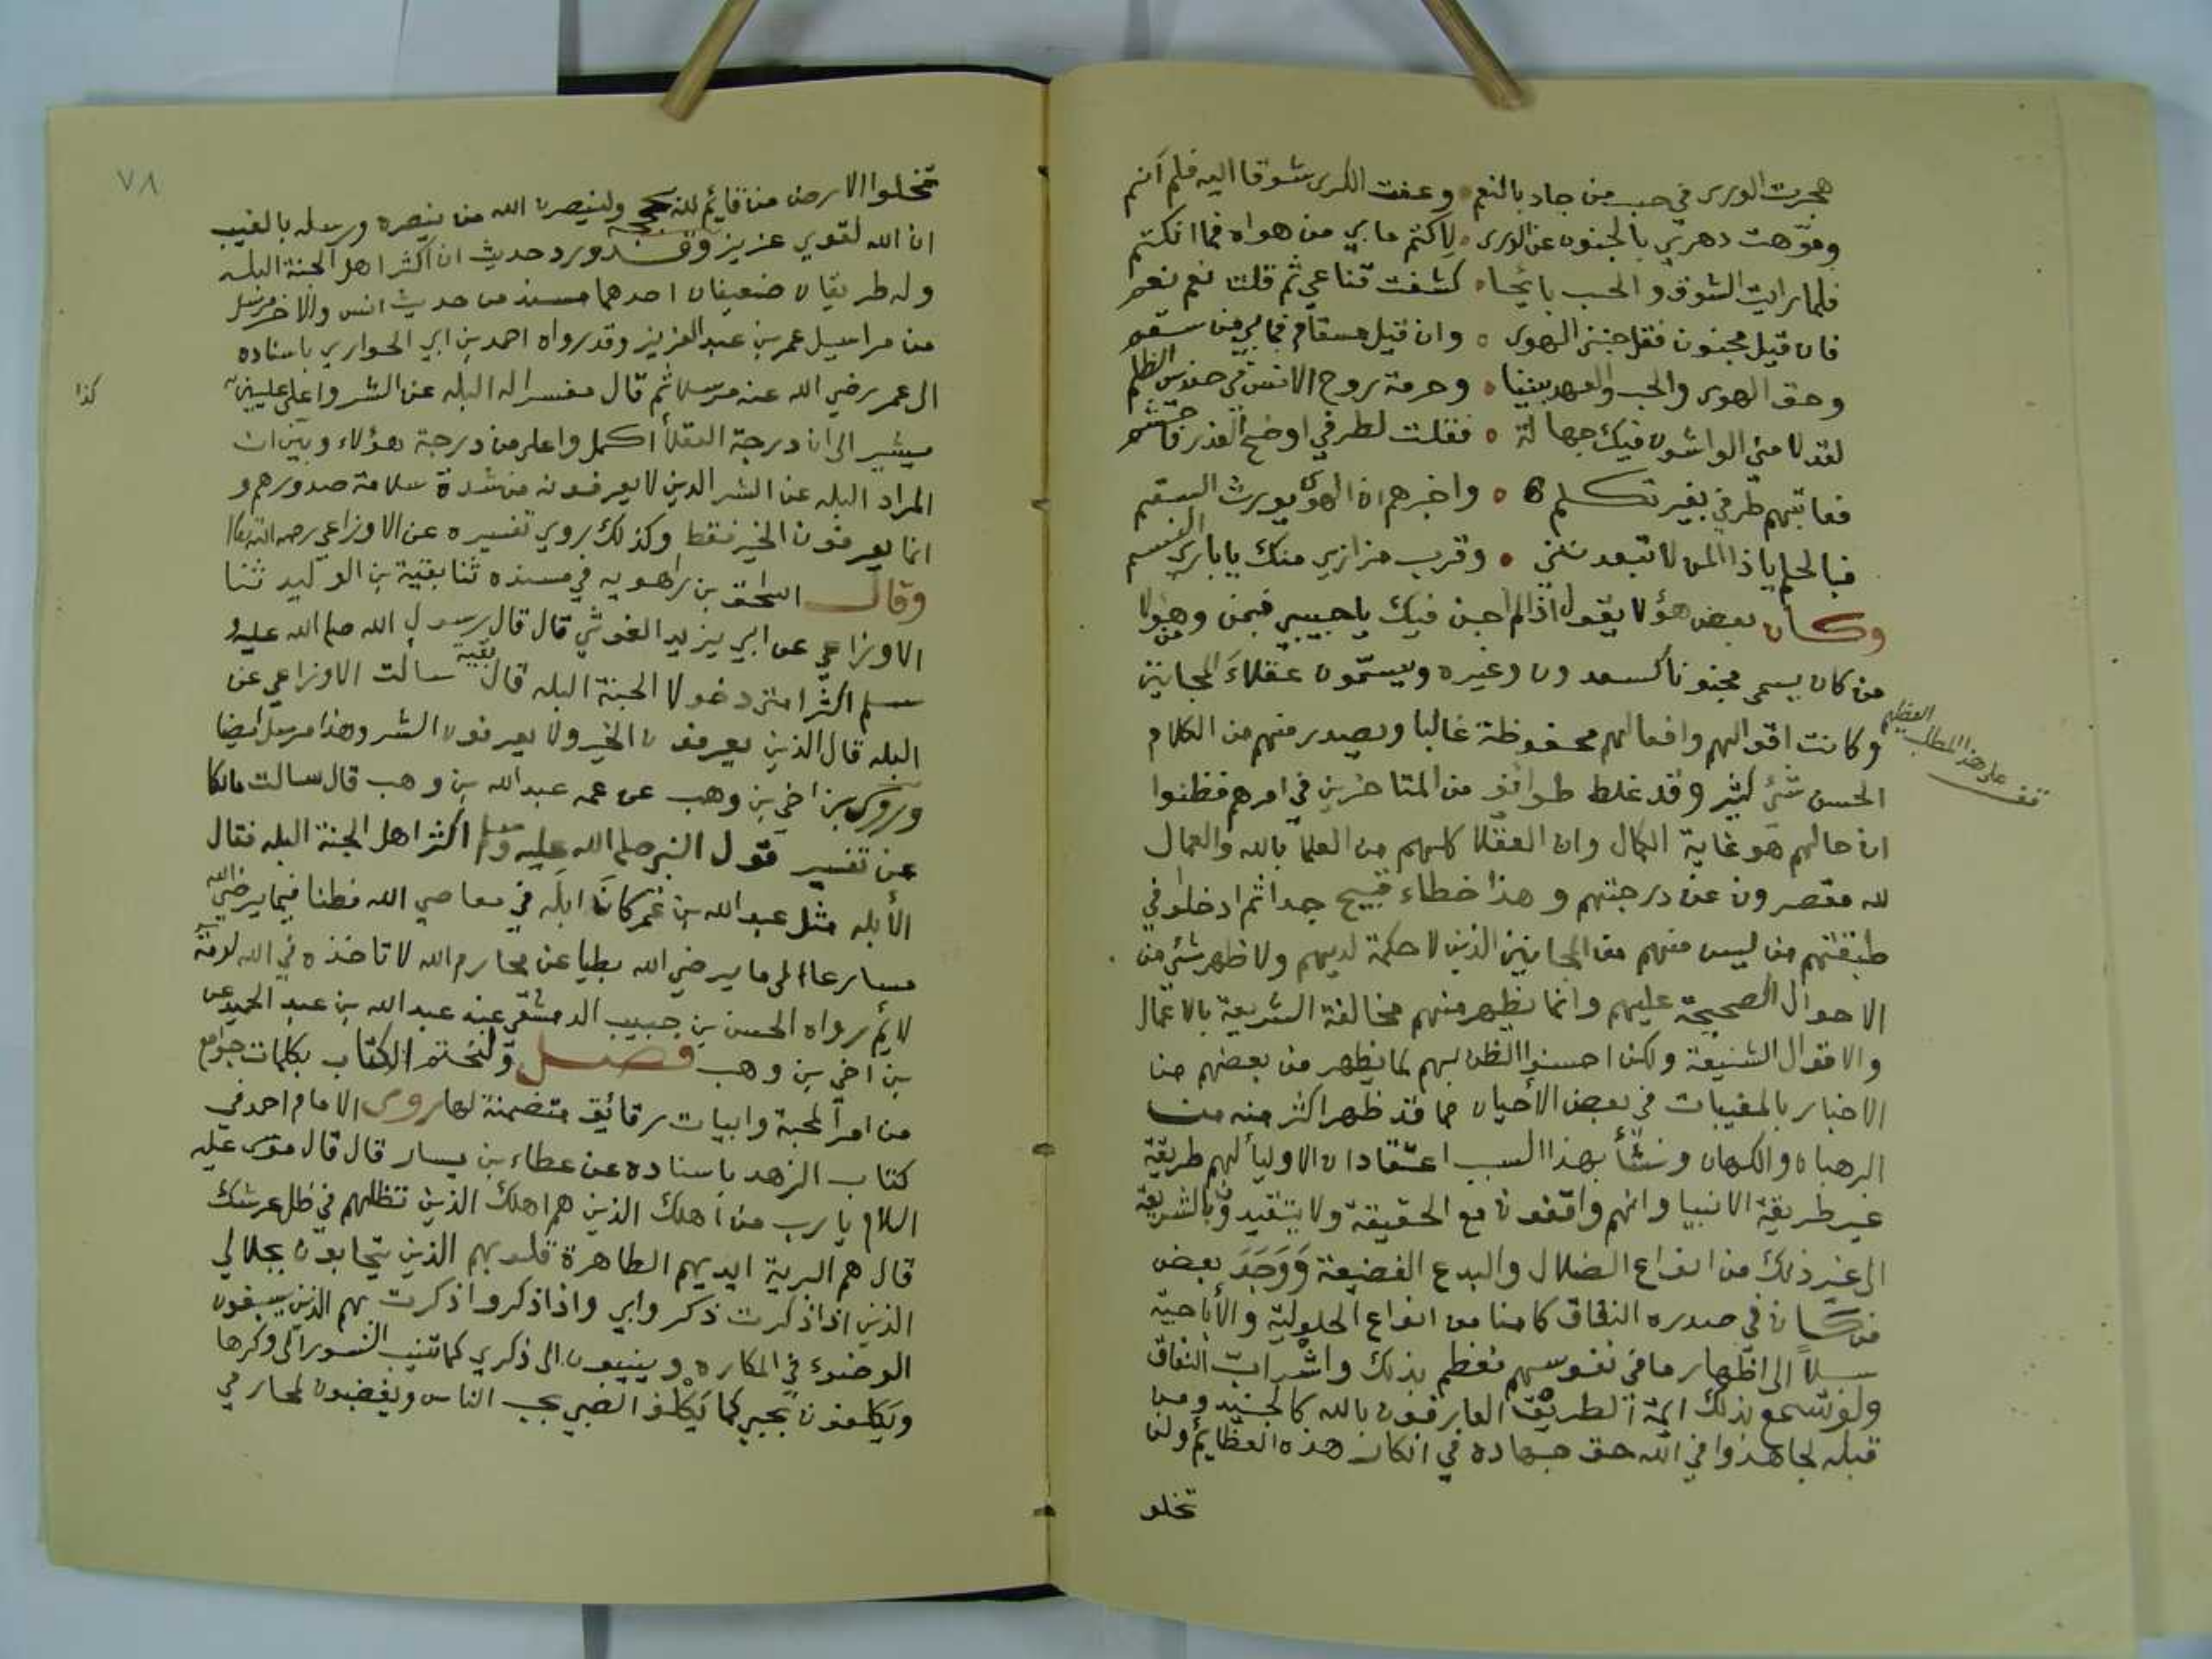 هجرت الورى في حب من جاد بالنعم وعفت الكرى شوقا اليه فلم أنم
وموّهت دهري بالجنون عن الورى لاكتم ما بي من هواه فما انكتم
فلما رايت الشوق والحب بايحا كشفت قناعي ثم قلت نعم نعم
فان قيل مجنون فقل جنني الهوى وان قيل مسقام فما بي من سقم
وحق الهوى والحب والعهد بيننا وحرمة روح الانس في حندس الظلم
لقد لامني الواشون فيك جهالة فقلت لطرفي اوضح العذر فاحتشم
فعاتبهم طرفي بغير تكلم واخبرهم ان الهوى يورث السقم
فبالحلم ياذا المن لا تبعدنني وقرب مزاري منك يا باري النسم
وكان بعض هؤلا يقول اذا لم اجن فيك يا حبيبي فبمن وهؤلا
من كان يسمى مجنونا كسعدون وغيره ويسمّون عقلاءَ المجانين
وكانت اقوالهم وافعالهم محفوظة غالبا ويصدر منهم من الكلام
قف على هذا المطلب العظيم
الحسن شئ كثير وقد غلط طوائف من المتاخرين في امرهم فظنوا
ان حالهم هو غاية الكمال وان العقلا كلهم من العلما بالله والعمال
لله مقصرون عن درجتهم وهذا خطاء قبيح جدا ثم ادخلوا في
طبقتهم من ليس منهم من المجانين الذين لا حكمة لديهم ولا ظهر شئ من
الاحوال الصحيحة عليهم وانما يظهر منهم مخالفة الشريعة بالاعمال
والاقوال الشنيعة ولكن احسنوا الظن بهم لما يظهر من بعضهم من
الاخبار بالمغيبات في بعض الأحيان مما قد ظهر اكثر منه من
الرهبان والكهان ونشأ بهذا السبب اعتقاد ان الاوليا لهم طريقة
غير طريقة الانبيا وانهم واقفون مع الحقيقة ولا يتقيدو بالشريعة
الى غير ذلك من انواع الضلال والبدع الفضيعة وَوَجَدَ بعض
من كان في صدره النفاق كامنا من انواع الحلولية والأباحية
سبيلاً الى اظهار ما في نفوسهم فعظم بذلك واشرأب النفاق
ولو سمع بذلك ائمة الطريق العارفون بالله كالجنيد ومن
قبله لجاهدوا في الله حق جهاده في انكار هذه العظايم ولن
تخلو
٧٨
تخلوا الارض من قائم لله بحجة ولينصرن الله من ينصره ورسله بالغيب
ان الله لقوي عزيز وقد ورد حديث ان اكثر اهل الجنة البله
وله طريقان ضعيفان احدهما مسند من حديث انس والاخر مرسل
من مراسيل عمر بن عبد العزيز وقد رواه احمد بن ابي الحواري باسناده
الى عمر رضي الله عنه مرسلا ثم قال مفسرا له البله عن الشر واعلى عليين
كذا
يشير الى ان درجة العقلا اكمل واعلى من درجة هؤلاء وبين ان
المراد البله عن الشر الذين لا يعرفونه من شدة سلامة صدورهم و
انما يعرفون الخير فقط وكذلك روي تفسيره عن الاوزاعي رحمه الله تعالى
وقال اسحق بن راهويه في مسنده ثنا بقية بن الوليد ثنا
الاوزاعي عن ابي يزيد الغوثي قال قال رسول الله صلى الله عليه و
سلم اكثر امتي دخولا الجنة البله قال بقية سالت الاوزاعي عن
البله قال الذين يعرفون الخير ولا يعرفون الشر وهذا مرسل ايضا
وروى بن اخي بن وهب عن عمه عبد الله بن وهب قال سالت مالكا
عن تفسير قول النبي صلى الله عليه وسلم اكثر اهل الجنة البله فقال
الأبله مثل عبد الله بن عمر كانَ ابلَه في معاصي الله فطنا فيما يرضي الله
مسارعا الى ما يرضي الله بطيا عن محارم الله لا تاخذه في الله لومة
لائم رواه الحسن بن حبيب الدمشقي عنه عبد الله بن عبد الحميد عن
بن اخي بن وهب فصل ولنختم الكتاب بكلمات جوامع
من امر المحبة وابيات رقائق متضمنة لها روى الامام احمد في
كتاب الزهد باسناده عن عطاء بن يسار قال قال موسى عليه
السلام يا رب من اهلك الذين هم اهلك الذين تظلهم في ظل عرشك
قال هم البرية ايديهم الطاهرة قلوبهم الذين يتحابون بجلالي
الذين اذا ذكرت ذكروا بي واذا ذكروا ذكرت بهم الذين يسبغون
الوضوء في المكاره وينيبون الى ذكري كما تنيب النسور الى وكرها
ويَكلفون بحبي كما يَكلف الصبي بحب الناس ويغضبون لمحارمي